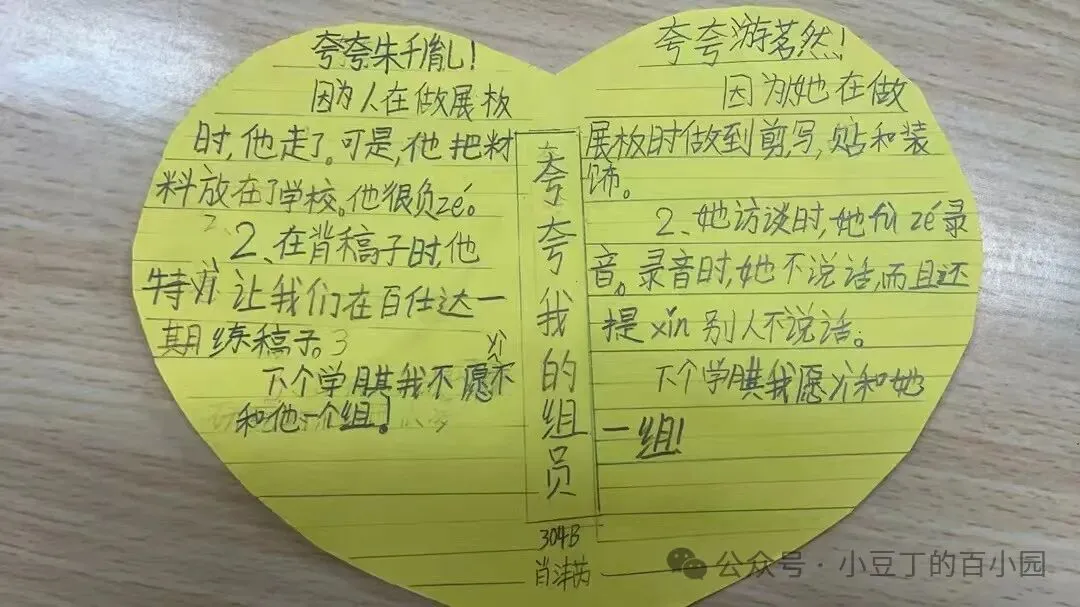 夸夸朱千胤!
因为人在做展板
时,他走了。可是,他把材
料放在了学校。他很负zé。
2、在背稿子时,他
特yì让我们在百仕达一
期练稿子。3
下个学期我不愿yì不
和他一个组!
夸夸我的组员
304B
肖沣芮
夸夸游茗然!
因为她在做
展板时做到剪,写,贴和装
饰。
2、她访谈时,她fù zé录
音。录音时,她不说话,而且还
提xǐn别人不说话。
下个学期我愿yì和她
一组!
公众号·小豆丁的百小园